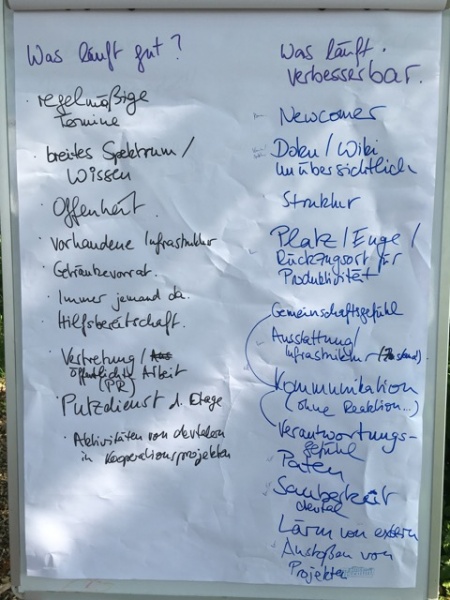 Was läuft gut?
regelmäßige
Termine
breites Spektrum/
Wissen
Offenheit.
vorhandene Infrastruktur
Getränkevorrat.
Immer jemand da.
Hilfsbereitschaft.
Vertretung/
öffentliche Arbeit
(PR)
Putzdienst d. Etage
Aktivitäten von devtalen
in Kooperationsprojekten
Was läuft
verbesserbar.
Newcomer
Doku/Wiki
unübersichtlich
Struktur
Platz/Enge/
Rückzugsort für
Produktivität
Gemeinschaftsgefühl
Ausstattung/
Infrastruktur
Kommunikation
(ohne Reaktion...)
Verantwortungs-
gefühl
Paten
Sauberkeit
devtal
Lärm von extern
Anstoßen von
Projekten